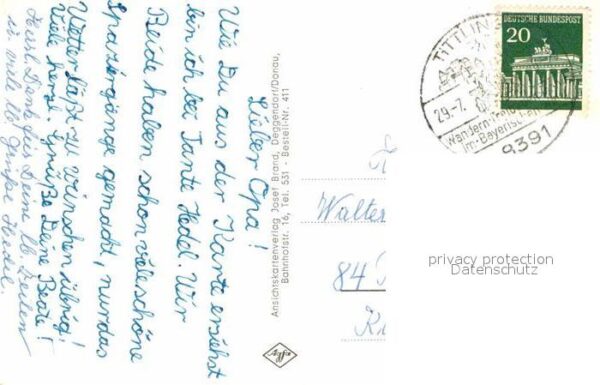 Lieber Opa!
Wie Du aus der Karte ersiehst
bin ich bei Tante Hedel. Wir
Beide haben schon viele schöne
Spaziergänge gemacht, nur das
Wetter läßt zu wünschen übrig!
Viele herz. Grüße Deine Beate!
Karl, Dank für Deine lb. Zeilen
Grüße Hedel.
Ansichtskartenverlag Josef Brand, Deggendorf/Donau,
Bahnhofstr. 16, Tel. 531 - Bestell-Nr. 411
Agfa
DEUTSCHE BUNDESPOST
20
TITTLIN
29.-7.
Wandern
im Bayerisch
8391
Walter
84
privacy protection
Datenschutz